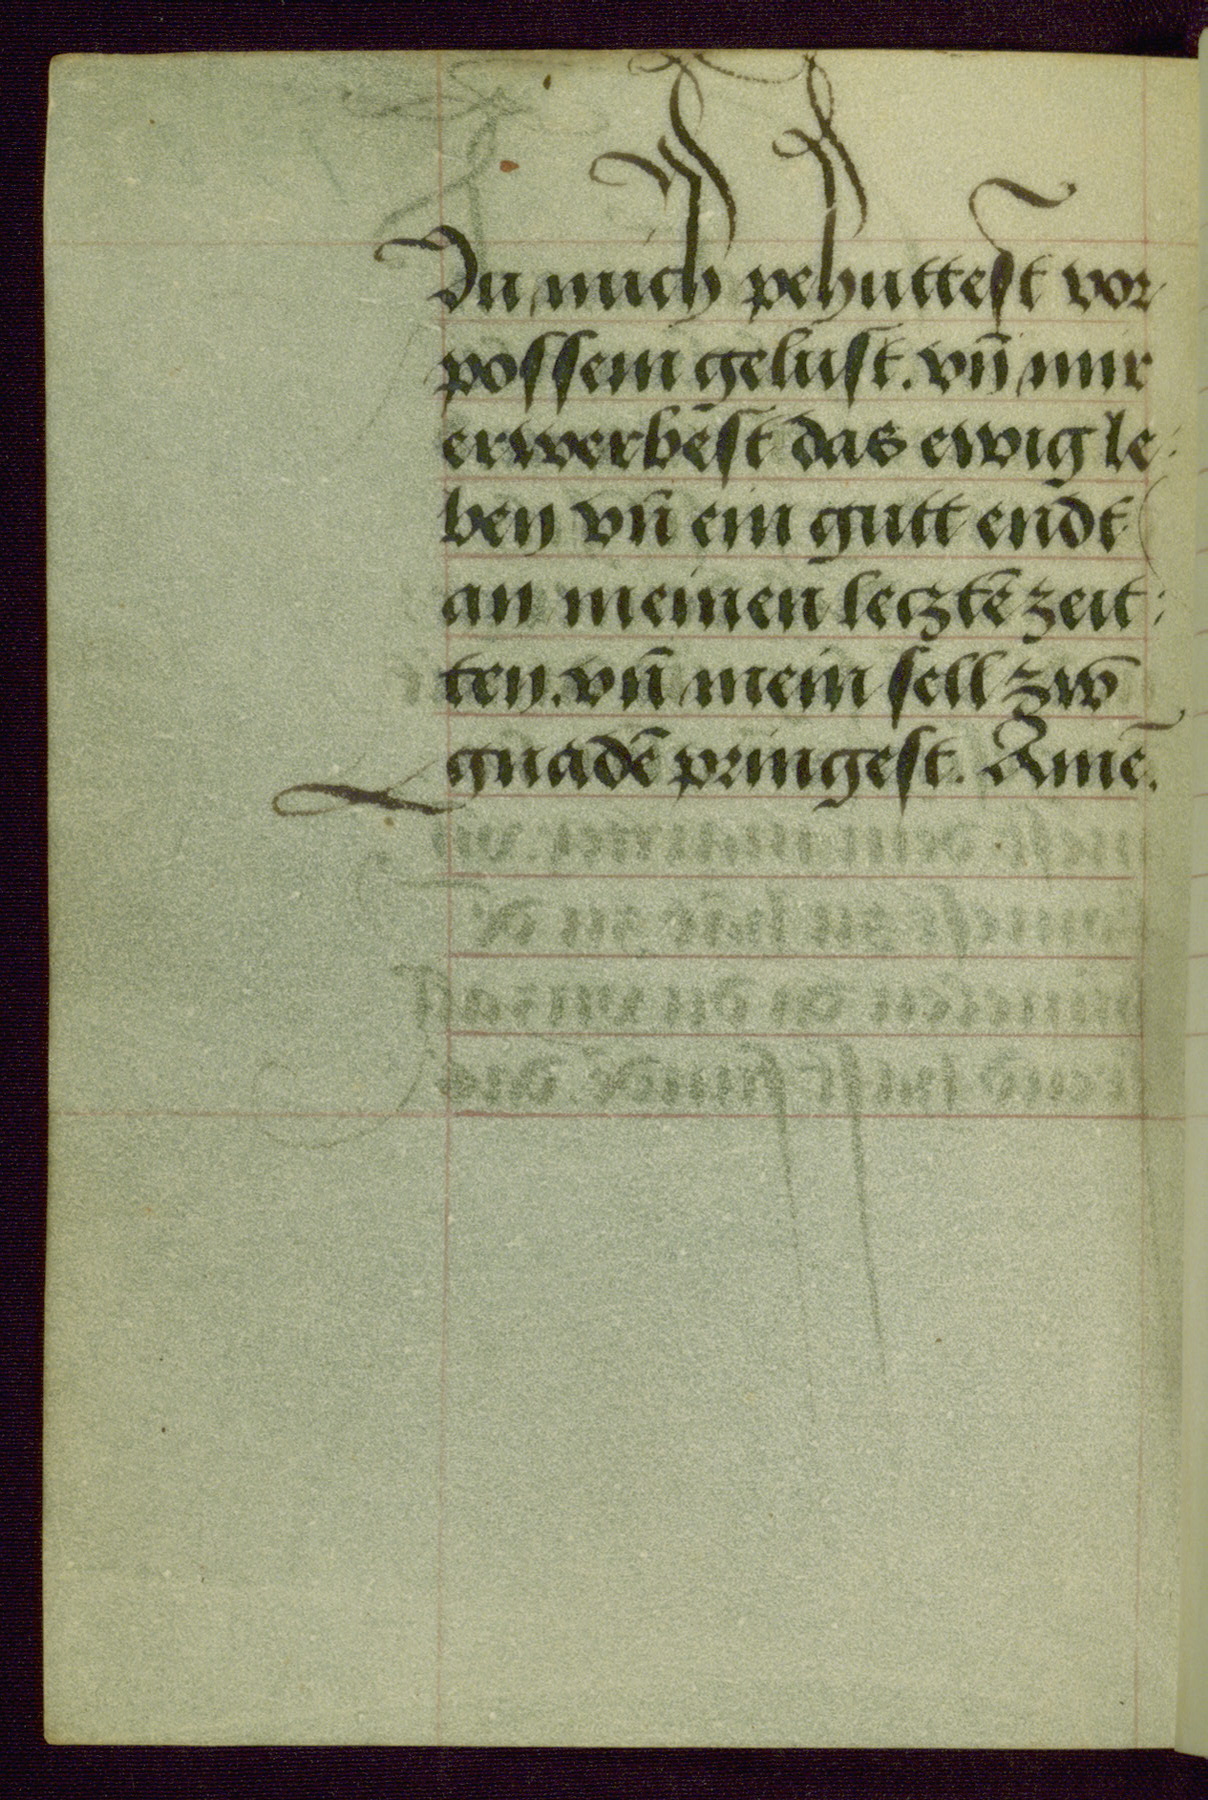 Du mich pehuttest vor
possem gelust. vn̄ mir
erwerbēst das ewig le-
ben vn̄ ein gutt endt
an meinen lecztē zeit-
ten. vn̄ mein sell zw
gnadē pringest. Amē.